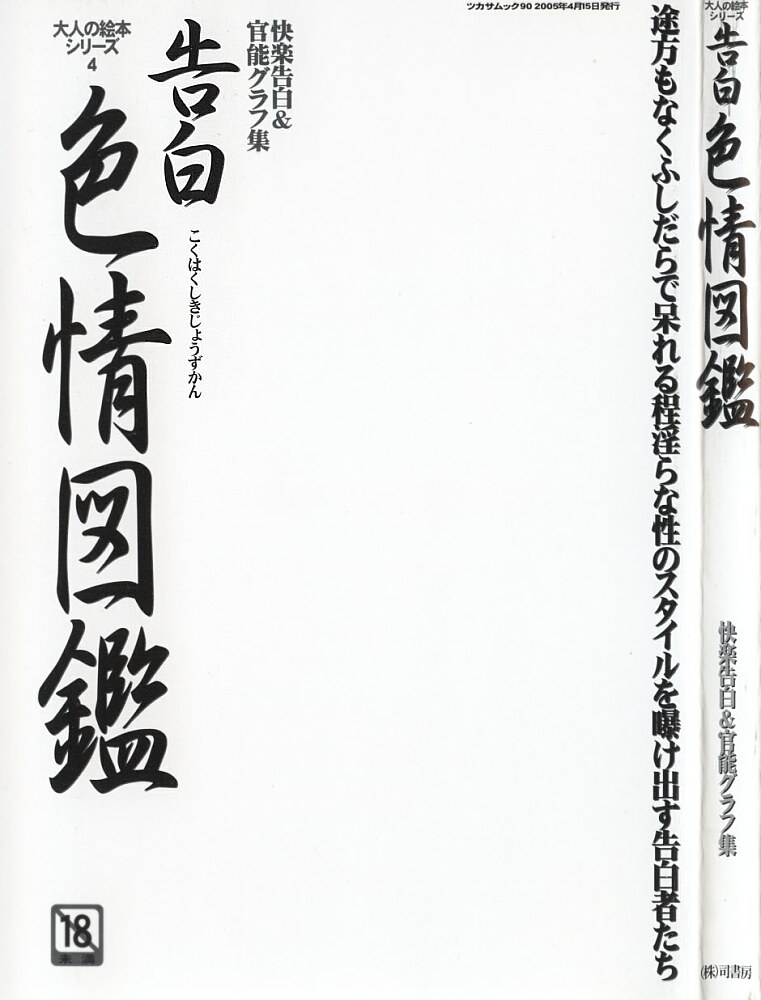 ツカサムック90 2005年4月15日発行
大人の絵本
シリーズ
告白色情図鑑
快楽告白&官能グラフ集
(株)司書房
途方もなくふしだらで呆れる程淫らな性のスタイルを曝け出す告白者たち
快楽告白&
官能グラフ集
告白
こくはくしきじょうずかん
大人の絵本
シリーズ
4
色情図鑑
18
未満